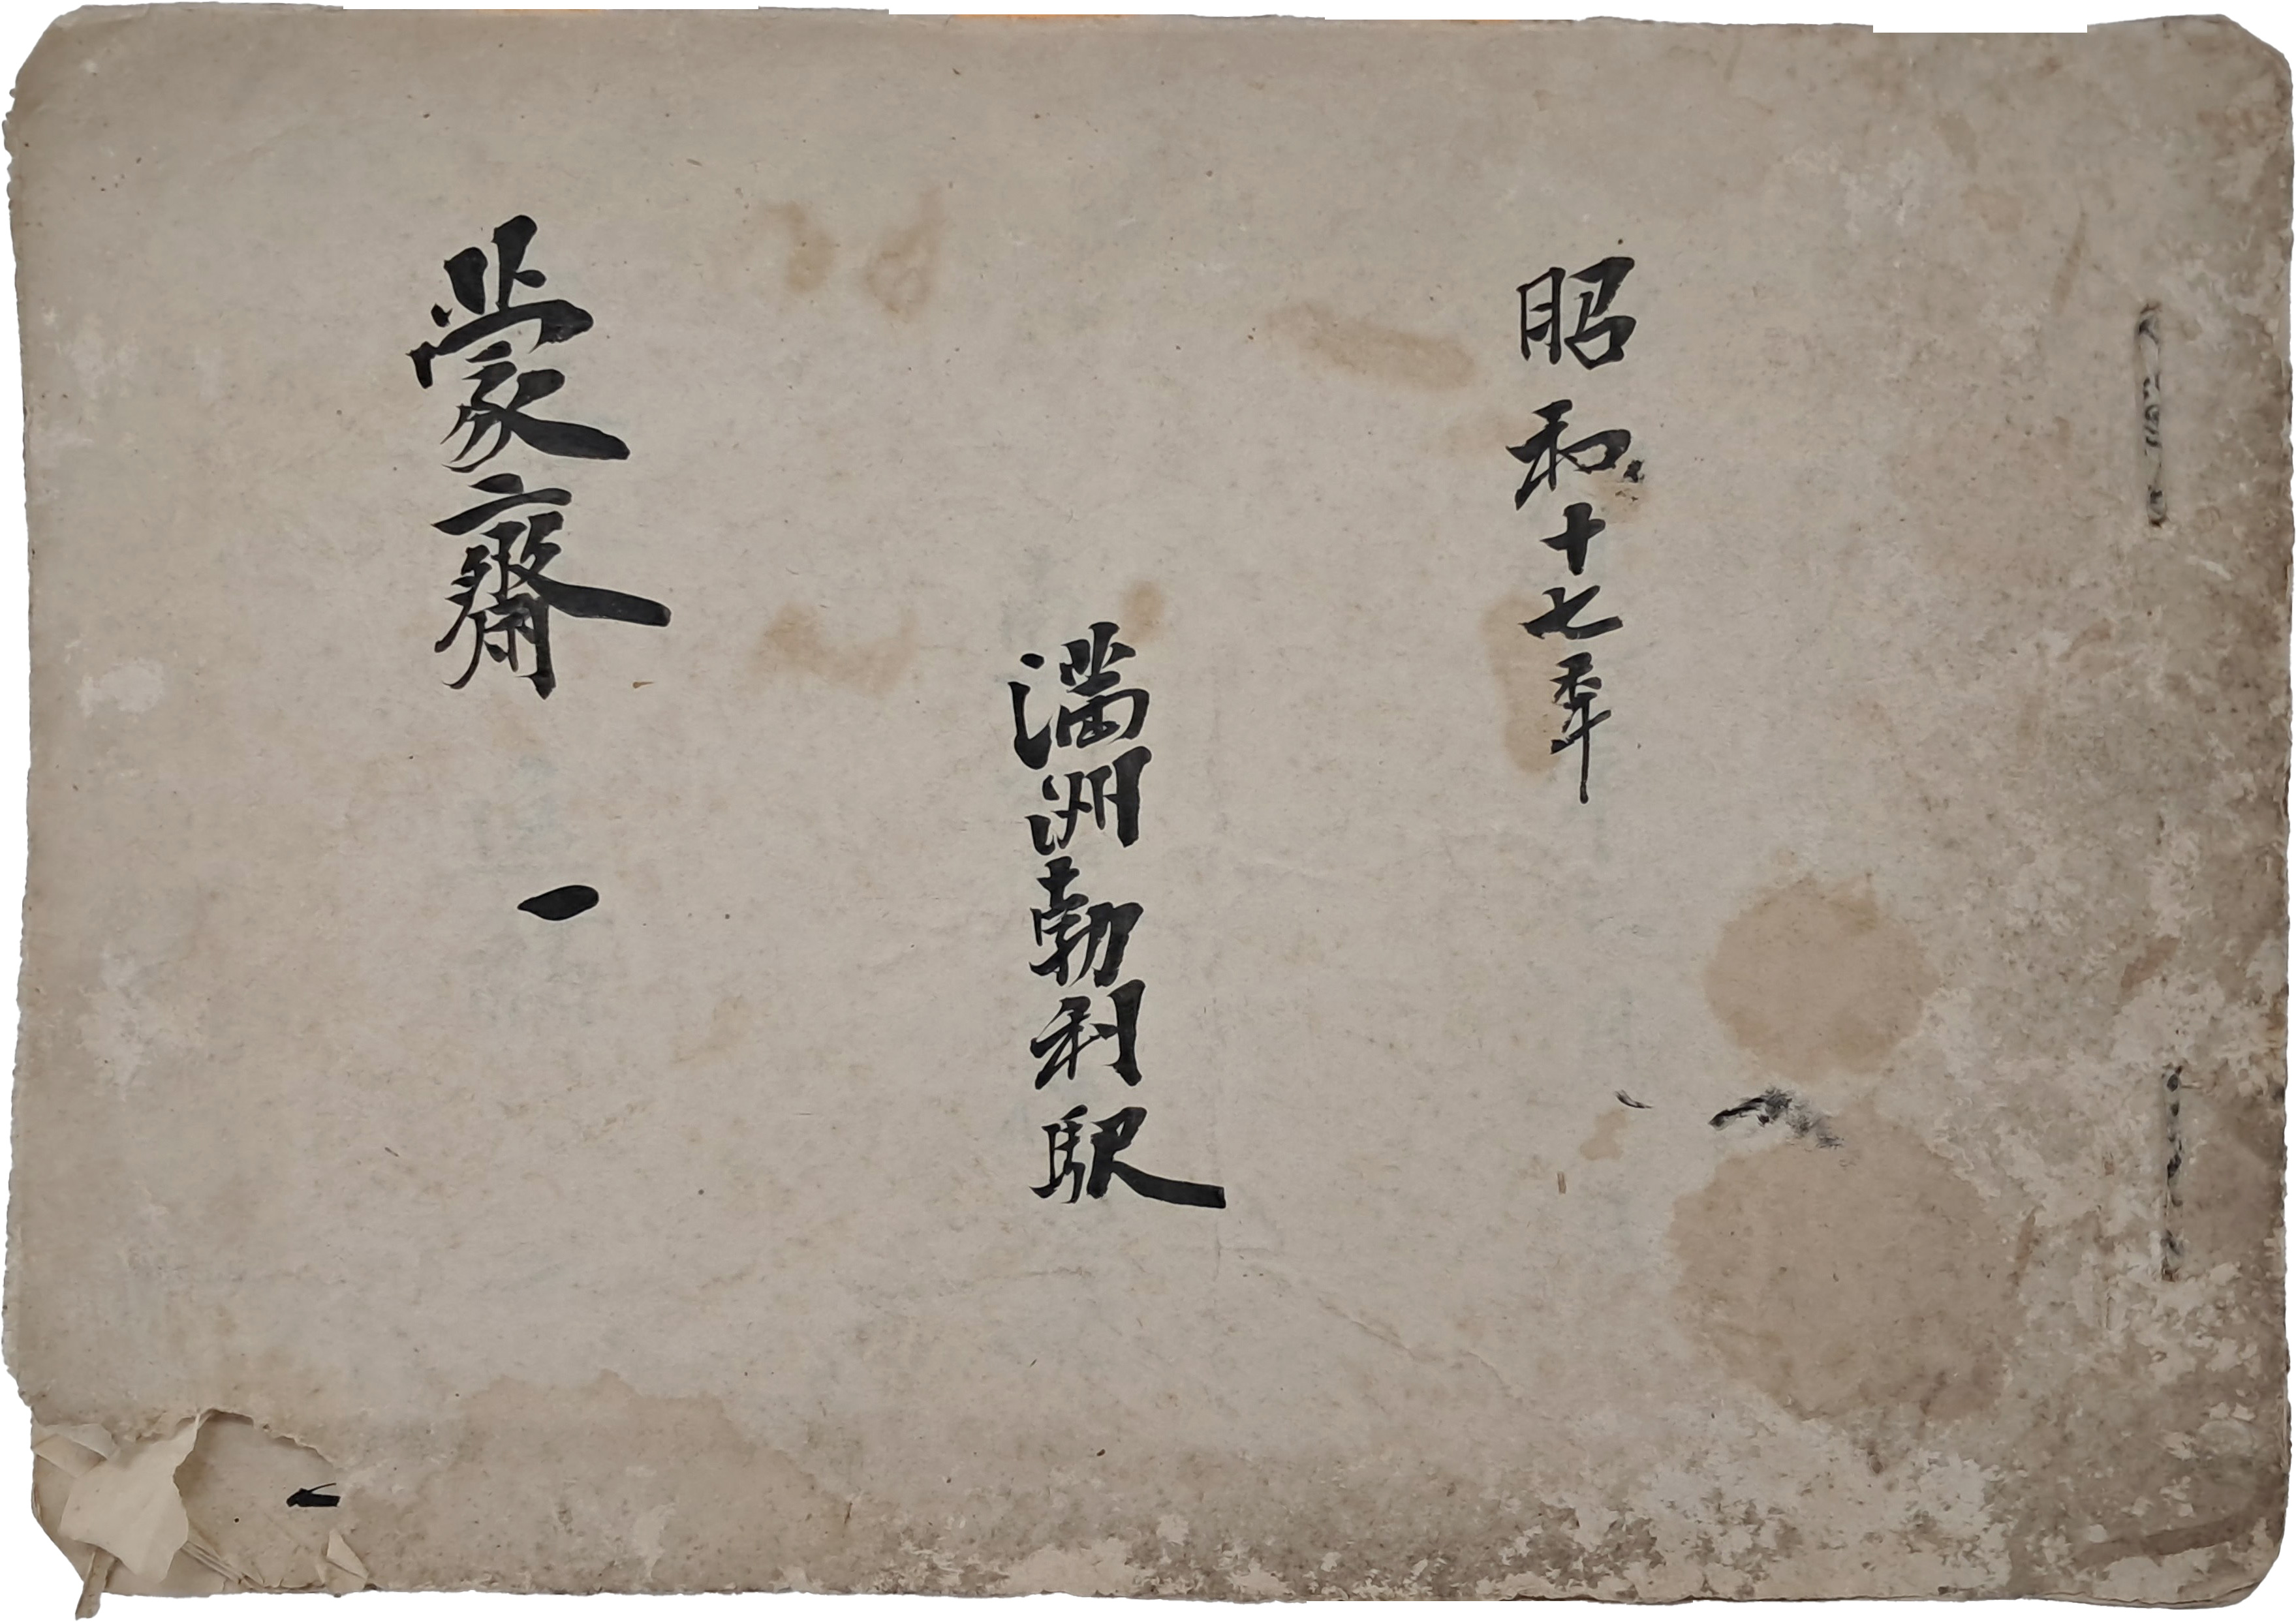 昭和十七年
満洲勃利駅
蒙齋 一